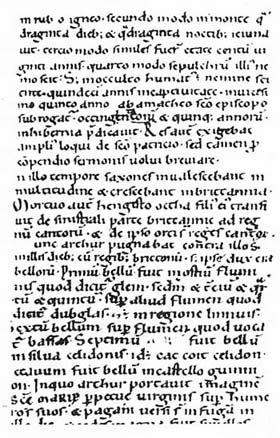 in rubo igneo. secundo modo in monte q̄
draginta dieb; & q̄draginta noctib; ieiuna
uit. tercio modo similes fuer̄ etate centū ui
ginti annis. quarto modo sepulchrū illiꝰ ne
mo scit. S; in occulto humatꝰ. nemine sci
ente. quindecī annis in captiuitate. in uicesi
mo quinto anno ab amatheo sc̄o episcopo
subrogat᷑. octingentorū & quinq; annorū.
in hibernia p̄dicauit. Res aut̄ exigebat
ampliꝰ loqui de sc̄o patricio. sed tamen ꝓ
cōpendio sermonis uolui breuiare.
n illo tempore saxones inualescebant in
multitudine & crescebant in brittannia.
Mortuo aut̄ hengisto octha filiꝰ eiꝰ transi
uit de sinistrali parte brittannię ad reg
nū cantorū. & de ipso orti s̄ reges cantoꝝ.
unc arthur pugnabat contra illos.
in illis dieb; cū regib; brittonū. s; ipse dux erat
bellorū. Primū bellū fuit in ostiū flumi
nis quod dicit᷑ glein. scd̄m & tciū & qr̄
tū & quintū. sup̄ aliud flumen quod
dicit᷑ dubglas. & in regione linnuis.
extū bellum sup̄ flumen quod uoca
t᷑ bassas. Septimū fuit bellū
in silua celidonis. id; cat coit celidon.
ctauum fuit bellū in castello guinni
on. In quo arthur portauit imaginē
sc̄ę marię ꝑpetuę uirginis sup̄ hume
ros suos. & pagani uersi s̄ in fugā in